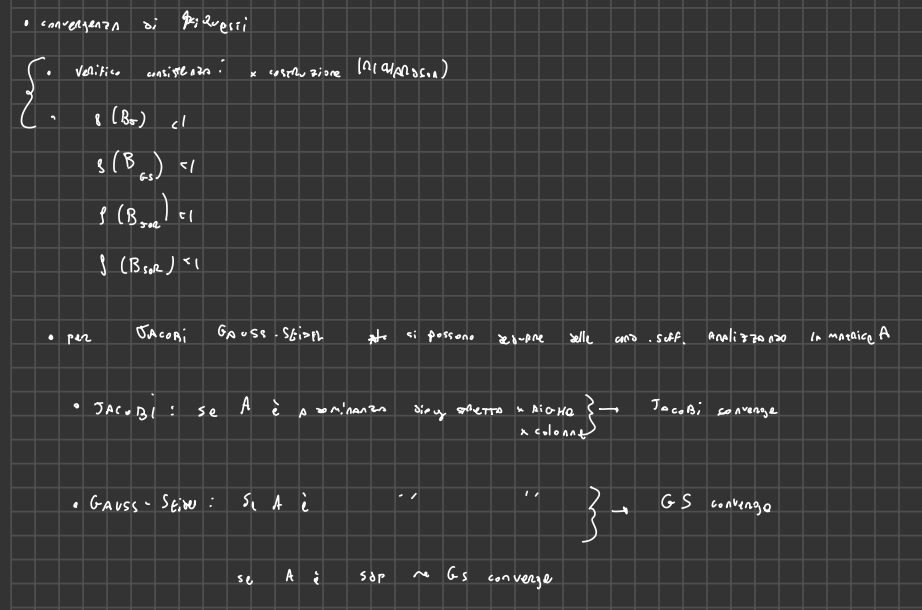 • convergenza di questi
• Verifico consistenza : x costruzione (richardson)
• ρ (B_J) <1
ρ (B_GS) <1
ρ (B_JOR) <1
ρ (B_SOR) <1
• per JACOBI GAUSS-SEIDEL si possono dedurre delle cond. suff. analizzando la matrice A
• JACOBI : se A è a dominanza diag stretta x righe } → JACOBI converge
x colonne
• GAUSS-SEIDEL : se A è '' '' } → GS converge
se A è sdp ~ GS converge